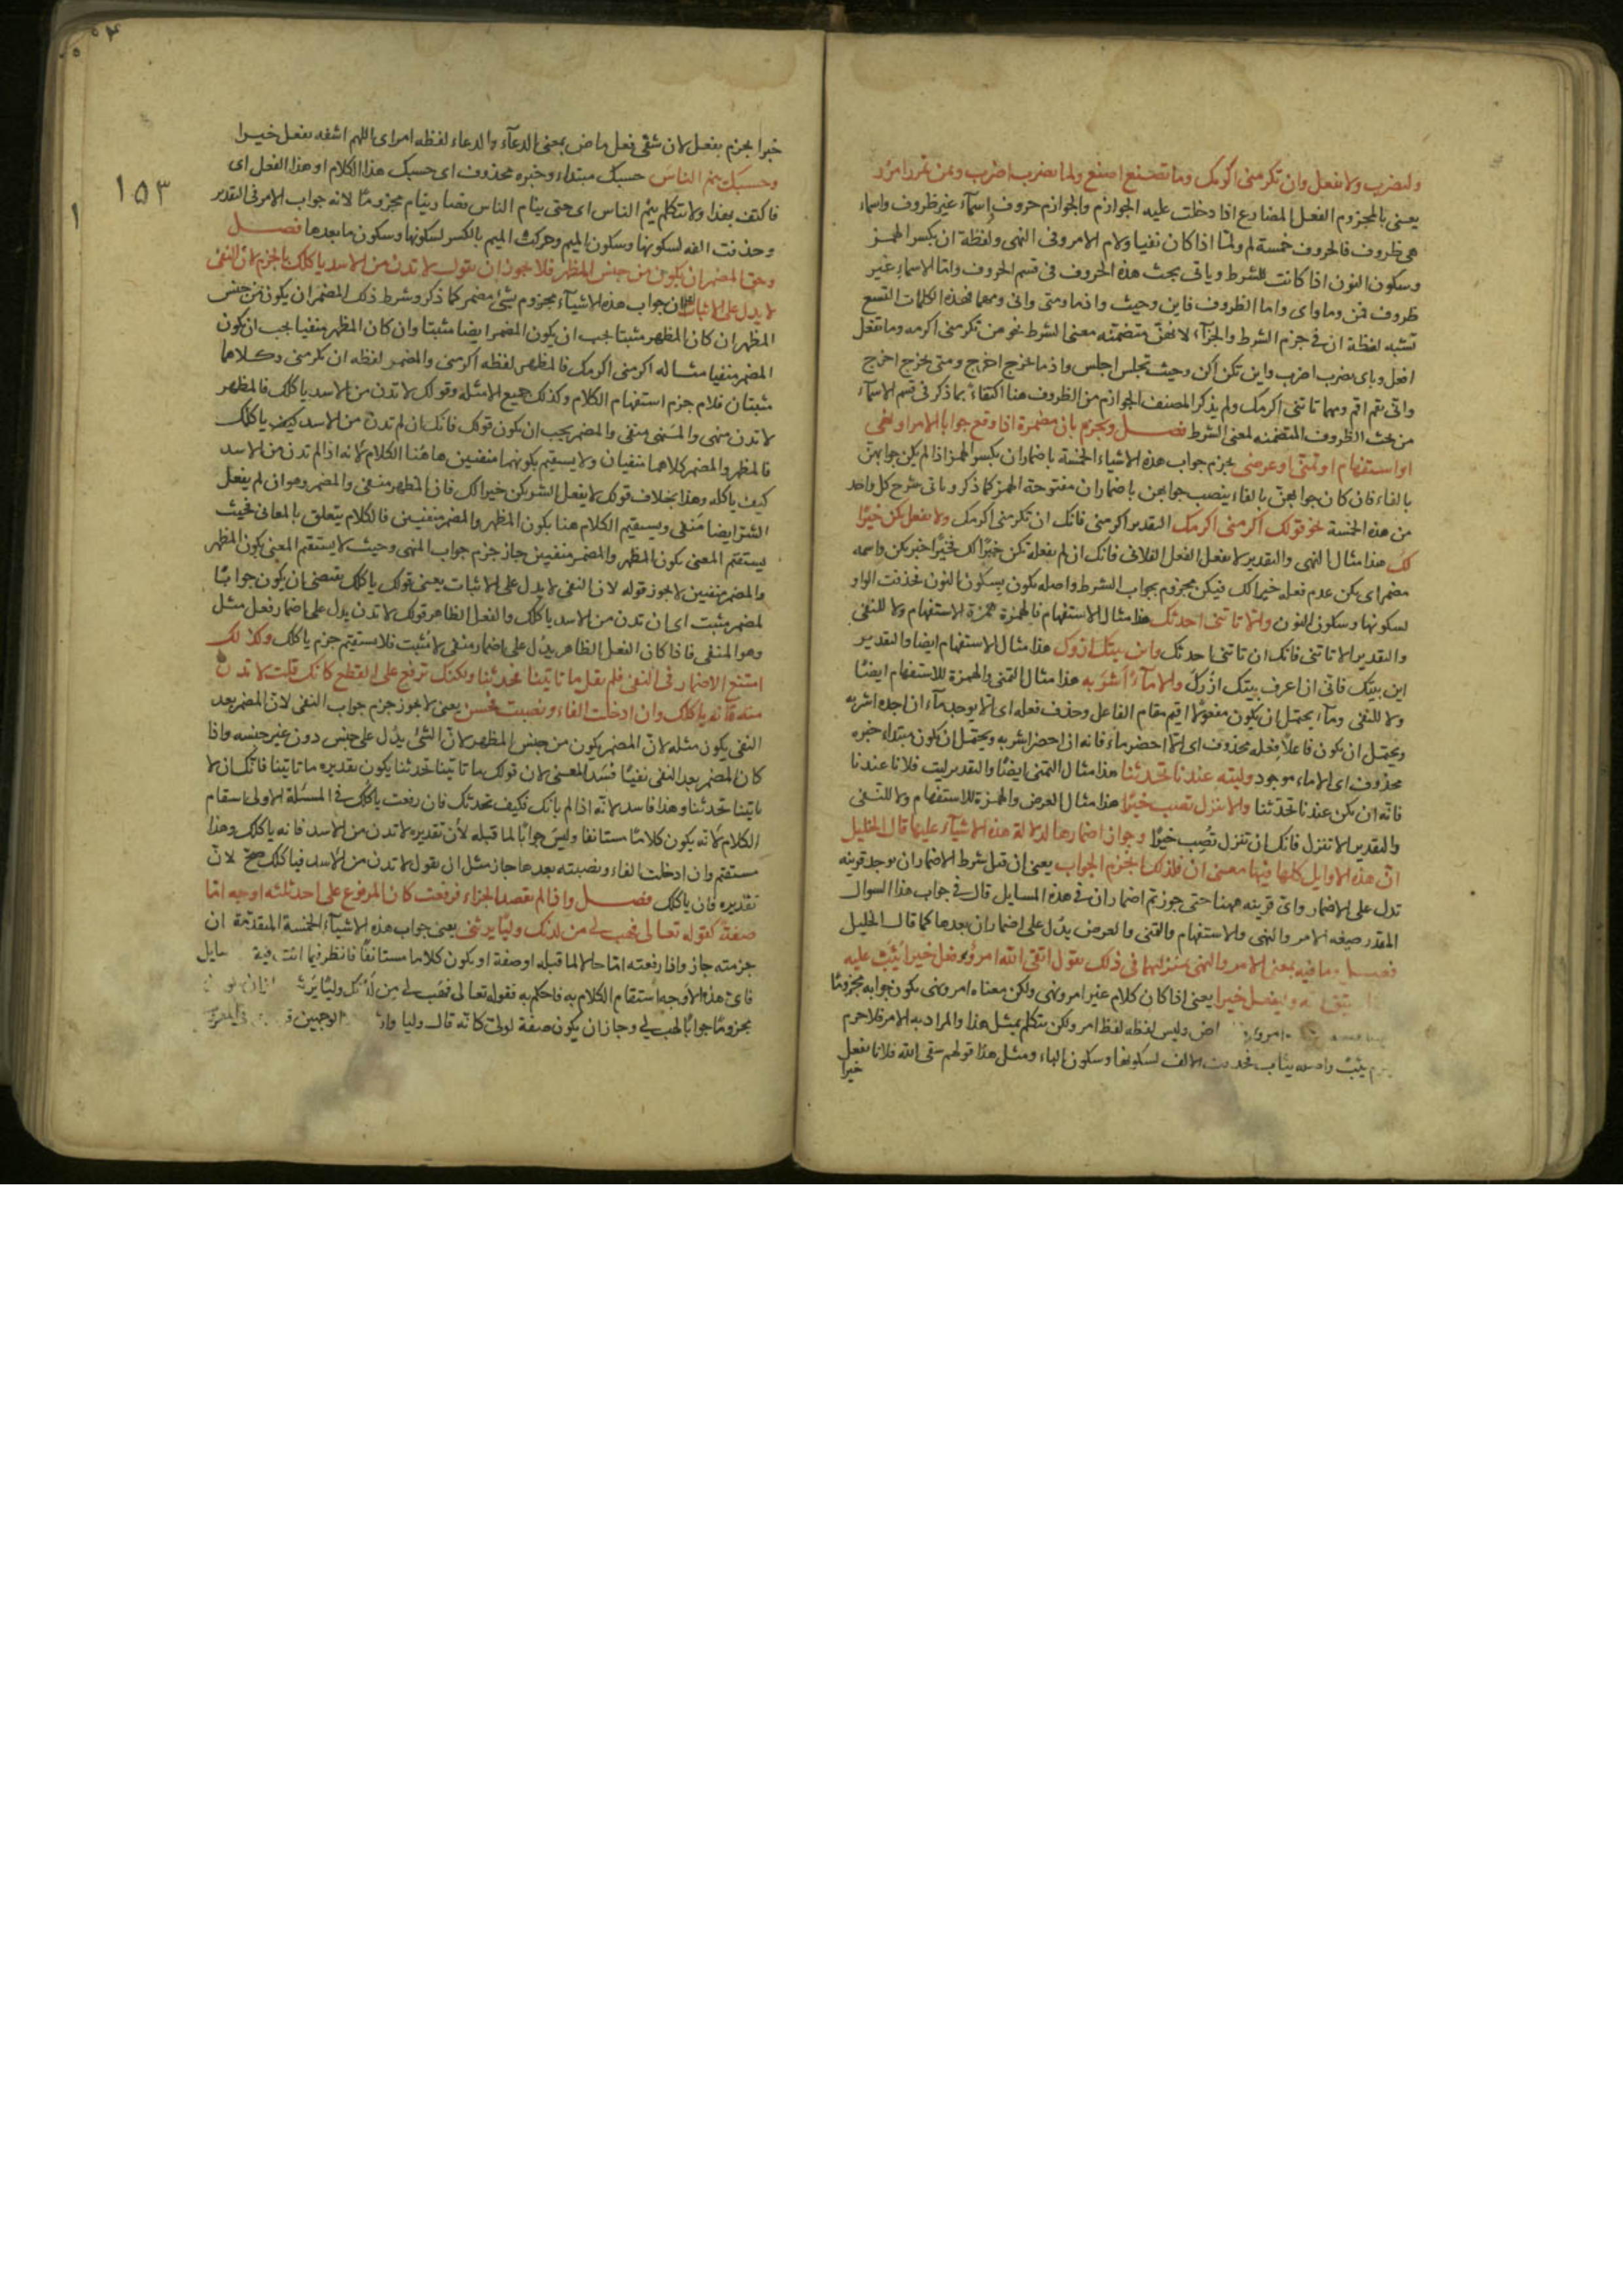 وليضرب ولا تفعل وان تكرمنى اكرمك وما تصنع اصنع ولما تضرب اضرب وبمن تمرر امرر
يعنى بالمجزوم الفعل المضارع اذا دخلت عليه الجوازم والجوازم حروف واسمآء غير ظروف واسماء
هى ظروف فالحروف خمسة لم ولمّا اذا كان نفيا ولام الامر وفى النهى ولفظة ان بكسر الهمز
وسكون النون اذا كانت للشرط وياتى بحث هذه الحروف فى قسم الحروف وامّا الاسماء غير
ظروف فمن وما واى واما الظروف فاين وحيث واذما ومتى وانى ومهما فهذه الكلمات التسع
تشبه لفظة ان فى جزم الشرط والجزآء لانهنّ متضمّنه معنى الشرط نحو من تكرمنى اكرمه وما تفعل
افعل وباى تضرب اضرب واين تكن اكن وحيث تجلس اجلس واذما تخرج اخرج ومتى تخرج اخرج
وانى تقم اقم ومهما تاتنى اكرمك ولم يذكر المصنف الجوازم من الظروف هنا اكتفاءً بما ذكر فى قسم الاسمآء
من بحث الظروف المتضمنه لمعنى الشرط فصــل ويجزم بان مضمرة اذا وقع جوابا لامر او نهى
او استفهام او تمنّى او عرض يجزم جواب هذه الاشياء الخمسة باضمار ان بكسر الهمز اذا لم يكن جوابهنّ
بالفاء فان كان جوابهنّ بالفاء ينصب جوابهن باضمار ان مفتوحة الهمز كما ذكر وياتى شرح كل واحد
من هذه الخمسة نحو قولك اكرمنى اكرمك التقدير اكرمنى فانك ان تكرمنى اكرمك ولا تفعل يكن خيرًا
لك هذا مثال النهى والتقدير لا تفعل الفعل الفلانى فانك ان لم تفعله يكن خيرًا لك فخيرًا خبر يكن واسمه
مضمر اى يكن عدم فعله خيرا لك فيكن مجزوم بجواب الشرط واصله يكون بسكون النون فحذفت الواو
لسكونها وسكون النون والا تاتنى احدثك هذا مثال الاستفهام فالهمزة همزة الاستفهام ولا للنفى
والتقدير الا تاتنى فانك ان تاتنى احدثك واين بيتك ازرك هذا مثال الاستفهام ايضا والتقدير
اين بيتك فانى ان اعرف بيتك ازرك والا مآءً اشربه هذا مثال التمنى والهمزة للاستفهام ايضًا
ولا للنفى ومآء يحتمل ان يكون مفعولا اقيم مقام الفاعل وحذف فعله اى الا يوجد مآء ان اجده اشربه
ويحتمل ان يكون فاعلا فعله محذوف اى الا احضر ماء فانه ان احضر اشربه ويحتمل ان يكون مبتداء خبره
محذوف اى الا ماء موجود وليته عندنا تحدثنا هذا مثال التمنى ايضًا والتقدير ليت فلانا عندنا
فانه ان يكن عندنا تحدثنا والا تنزل تصب خيرًا هذا مثال العرض والهمزة للاستفهام ولا للنفى
والتقدير الا تنزل فانك ان تنزل تصب خيرًا وجواز اضمارها لدلالة هذه الاشيآء عليها قال الخليل
انّ هذه الاوايل كلها فيها معنى ان فلذلك انجزم الجواب يعنى ان قيل شرط الاضمار ان يوجد قرينه
تدل على الاضمار واىّ قرينه ههنا حتى جوزتم اضمار ان فى هذه المسايل قال فى جواب هذا السوال
المقدر صيغه الامر والنهى والاستفهام والتمنى والعرض يدّل على اضمار ان بعدها كما قال الخليل
فصــل وما فيه بمعنى الامر والنهى بمنزلتهما فى ذلك تقول اتقى الله امرؤ وفعل خيرا يُثَبْ عليه
ليتق الله وليفعل خيرا يعنى اذا كان كلام غير امر ونهى ولكن معناه امر ونهى يكون جوابه مجزومًا
وليس لفظه لفظ امر ولكن يتكلم بمثل هذا والمراد به الامر فلا جرم
يثب واصله يثاب فحذفت الالف لسكونها وسكون الباء ومثل هذا قولهم سقى الله فلانا يفعل
خيرا
١٥٣
خيرا يجزم يفعل لان شقى فعل ماض بمعنى الدعآء والدعاء لفظه امر اى اللهم اشفه يفعل خيــرا
وحسبك ينم الناس حسبك مبتداء وخبره محذوف اى حسبك هذا الكلام او هذا الفعل اى
فاكتف بهذا ولا تتكلم ينم الناس اى حتى ينام الناس فصار ينام مجزومًا لانه جواب الامر فى التقدير
وحذفت الفه لسكونها وسكون الميم وحركت الميم بالكسر لسكونها وسكون ما بعدها فصــل
وحق المضمر ان يكون من جنس المظهر فلا يجوز ان تقول لا تدن من الاسد ياكلك بالجزم لانّ النفى
لا يدل على الاثبات ان جواب هذه الاشيآء مجزوم بشئ مضمر كما ذكر وشرط ذلك المضمر ان يكون من جنس
المظهر ان كان المظهر مثبتا يجب ان يكون المضمر ايضا مثبتا وان كان المظهر منفيا يجب ان يكون
المضمر منفيا مثاله اكرمنى اكرمك فالمظهر لفظه اكرمنى والمضمر لفظه ان تكرمنى وكلاهما
مثبتان فلام جزم استفهام الكلام وكذلك جميع الامثلة وقولك لا تدن من الاسد ياكلك فالمظهر
لا تدن منهى والمنهى منفى والمضمر يجب ان يكون قولك فانك ان لم تدن من الاسد كيف ياكلك
فالمظهر والمضمر كلاهما منفيان ولا يستقيم بكونهما منفيين هاهنا الكلام لانه اذا لم تدن من الاسد
كيف ياكله وهذا بخلاف قولك لا تفعل الشر يكن خيرا لك فان المظهر منفى والمضمر وهو ان لم تفعل
الشر ايضا منفى ويستقيم الكلام هنا بكون المظهر والمضمر منفيين فالكلام يتعلق بالمعانى فحيث
يستقيم المعنى بكون المظهر والمضمر منفيين جاز جزم جواب النهى وحيث لا يستقيم المعنى بكون المظهر
والمضمر منفيين لا يجوز قوله لان النفى لا يدل على الاثبات يعنى قولك ياكلك يقتضى ان يكون جوابًا
لمضمر مثبت اى ان تدن من الاسد ياكلك والفعل الظاهر قولك لا تدن يدل على اضمار فعل مثل
وهو المنفى فاذا كان الفعل الظاهر يدّل على اضمار منفى لا مثبت فلا يستقيم جزم ياكلك وكذلك
امتنع الاضمار فى النفى فلم يقل ما تاتينا تحدثنا ولكنك ترفع على القطع كانك قلت لا تدن
منه فانه ياكلك وان ادخلت الفاء ونصبت فحسن يعنى لا يجوز جزم جواب النفى لانّ المضمر بعد
النفى يكون مثله لانّ المضمر يكون من جنس المظهر لانّ الشئ يدّل على جنس دون غير جنسه واذا
كان المضمر بعد النفى نفيًا فسد المعنى لان قولك ما تاتينا تحدثنا يكون تقديره ما تاتينا فانك ان لا
تاتينا تحدثنا وهذا فاسد لانّه اذا لم ياتك فكيف تحدثك فان رفعت ياكلك فى المسئلة الاولى استقام
الكلام لانّه يكون كلامًا مستانفا وليس جوابًا لما قبله لأن تقديره لا تدن من الاسد فانه ياكلك وهذا
مستقيم وان ادخلت الفاء ونصبته بعدها جاز مثل ان تقول لا تدن من الاسد فياكلك صحّ لانّ
تقديره فان ياكلك فصــل واذا لم تقصد الجزاء فرفعت كان المرفوع على احد ثلثه اوجه امّا
صفة كقوله تعالى فهب لى من لدنك وليًا يرثنى يعنى جواب هذه الاشيآء الخمسة المتقدّمة ان
جزمته جاز واذا رفعته امّا حالا لما قبله او صفة او يكون كلاما مستانفًا فانظر فيما
فاىّ هذه الاوجه استقام الكلام به فاحكم به فقوله تعالى فهب لى من لدنك وليًا يرثـ
مجزومًا جوابًا لهب لى وجاز ان يكون صفة لولىّ كانّه قال وليا وارثا الوجهين